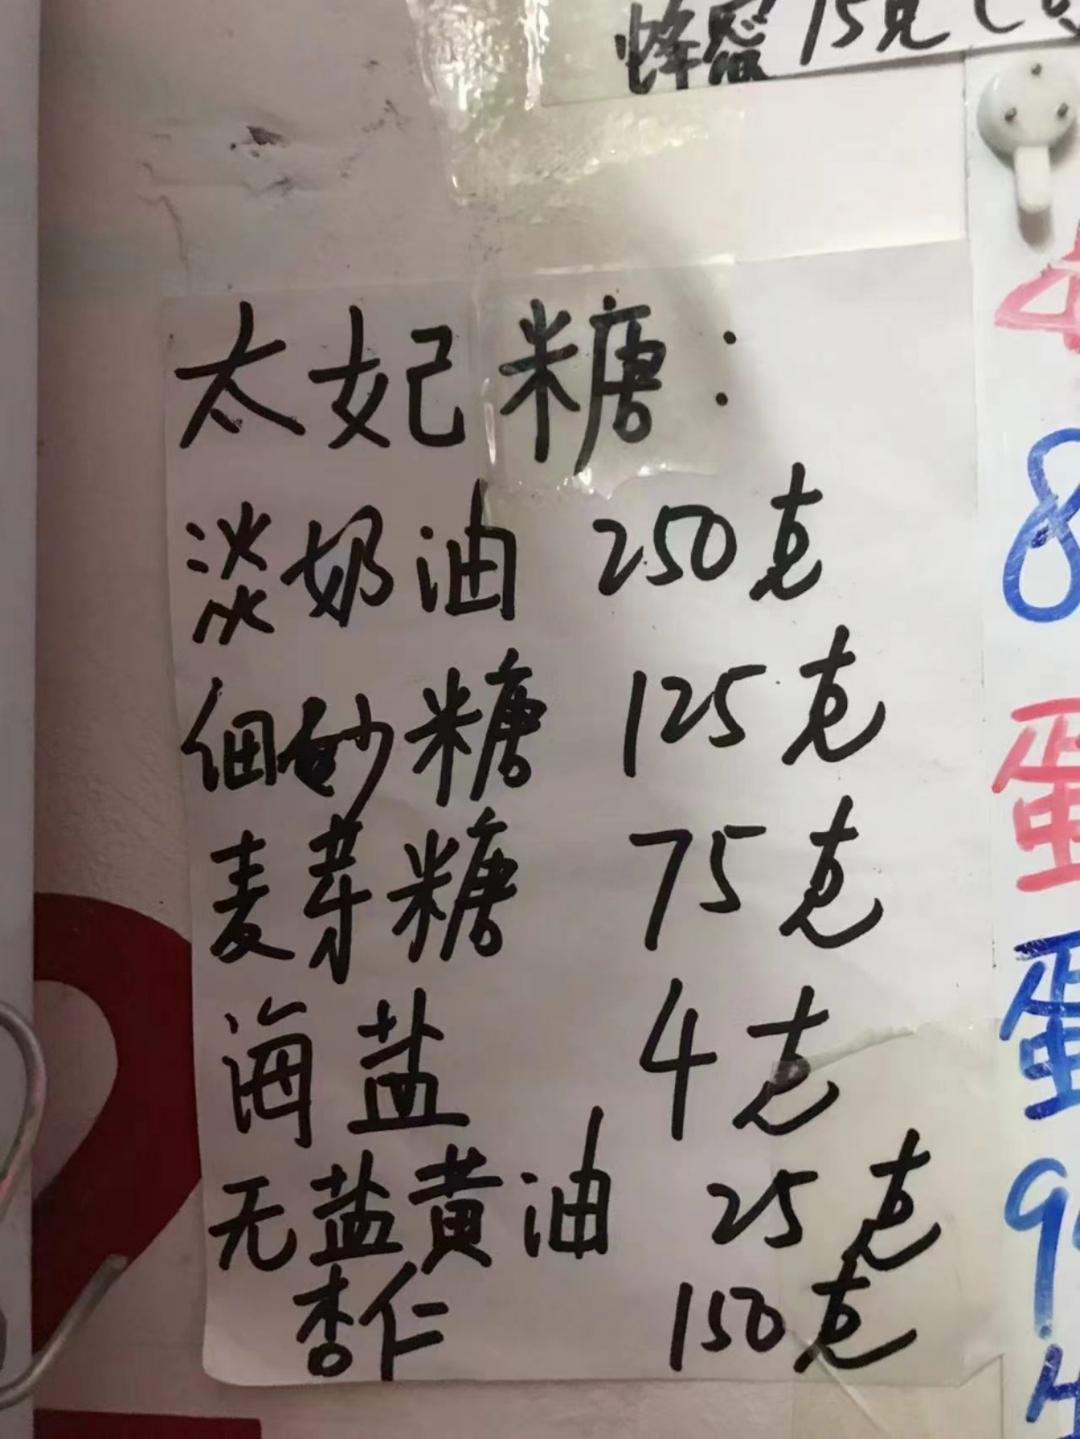 蜂蜜 15克
太妃糖:
淡奶油 250克
细砂糖 125克
麦芽糖 75克
海盐 4克
无盐黄油 25克
杏仁 150克
8
蛋
蛋
9